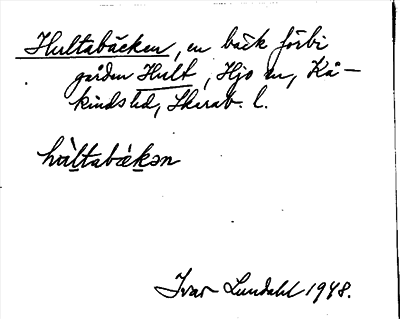 Hultabäcken, en bäck förbi
gården Hult, Hjo sn, Kå-
kinds hd, Skarab. l.
hùltabǽkən
Ivar Lundahl 1948.